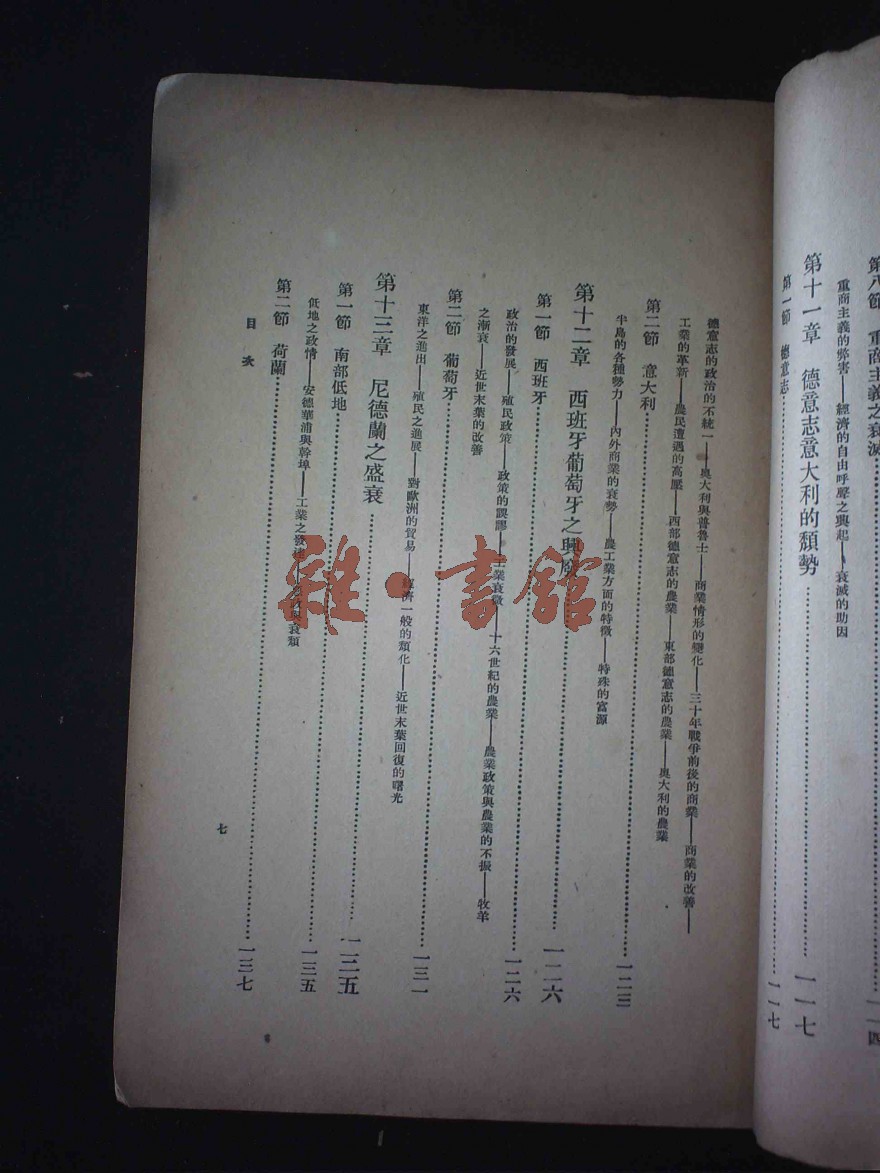 第八節 重商主義之衰滅……一一四
重商主義的弊害——經濟的自由呼聲之興起——衰滅的助因
第十一章 德意志意大利的頹勢……一一七
第一節 德意志……一一七
德意志的政治的不統一——奧大利與普魯士——商業情形的變化——三十年戰爭前後的商業——商業的改善——
工業的革新——農民遭遇的高壓——西部德意志的農業——東部德意志的農業——奧大利的農業
第二節 意大利……一二三
半島的各種勢力——內外商業的衰勢——農工業方面的特徵——特殊的富源
第十二章 西班牙葡萄牙之興……一二六
第一節 西班牙……一二六
政治的發展——殖民政策——政策的誤謬——工業衰微——十六世紀的農業——農業政策與農業的不振——牧羊
之漸衰——近世末葉的改善
第二節 葡萄牙……一三一
東洋之進出——殖民之進展——對歐洲的貿易——經濟一般的頹化——近世末葉回復的曙光
第十三章 尼德蘭之盛衰……一三五
第一節 南部低地……一三五
低地之政情——安德華浦與幹埠——工業之發達——與衰頹
第二節 荷蘭……一三七
目次
七
雜·書館